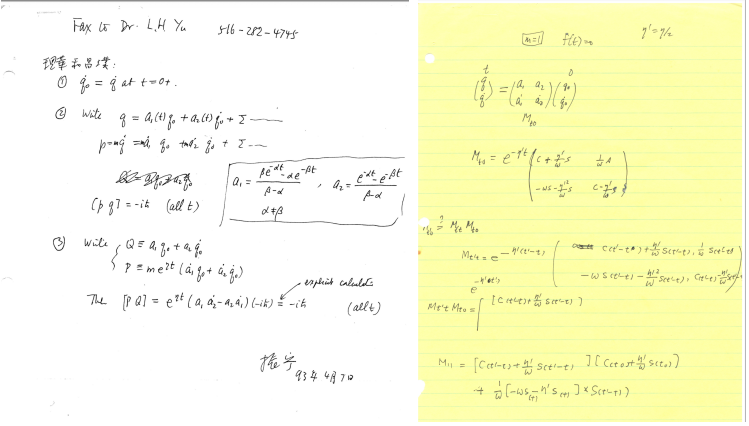 Fax to Dr. L.H Yu 516-282-4745
理華和昌璞:
① q̇₀ = q̇ at t=0+.
② Write q = a₁(t) q₀ + a₂(t) q̇₀ + Σ —
p = mq̇ = mȧ₁ q₀ + mȧ₂ q̇₀ + Σ —
[p q] = -iħ (all t)
a₁ = (βe^{-αt} - αe^{-βt})/(β-α) , a₂ = (e^{-αt} - e^{-βt})/(β-α)
α≠β
③ Write { Q ≡ a₁ q₀ + a₂ q̇₀
P ≡ m e^{ηt} (ȧ₁ q₀ + ȧ₂ q̇₀)
explicit calculation
Then [P Q] = e^{ηt} (a₁ ȧ₂ - a₂ ȧ₁)(-iħ) = -iħ (all t)
振宁
93年4月7日
m=1 f(t)=0 η' = η/2
t 0
(q q̇) = (a₁ a₂ ȧ₁ ȧ₂)(q₀ q̇₀)
M_{t0}
M_{t0} = e^{-η't} (C + η'/ω S 1/ω S
-ωS - η'²/ω S C - η'/ω S)
?= M_{t't} M_{t0}
M_{t't} = e^{-η'(t'-t)} ( C(t'-t) + η'/ω S(t'-t), 1/ω S(t'-t)
-ω S(t'-t) - η'²/ω S(t'-t), C(t'-t) - η'/ω S(t'-t) )
M_{t't} M_{t0} = [ [C(t'-t) + η'/ω S(t'-t) ]
M₁₁ = [C(t'-t) + η'/ω S(t'-t) ] [C(t,0) + η'/ω S(t,0)]